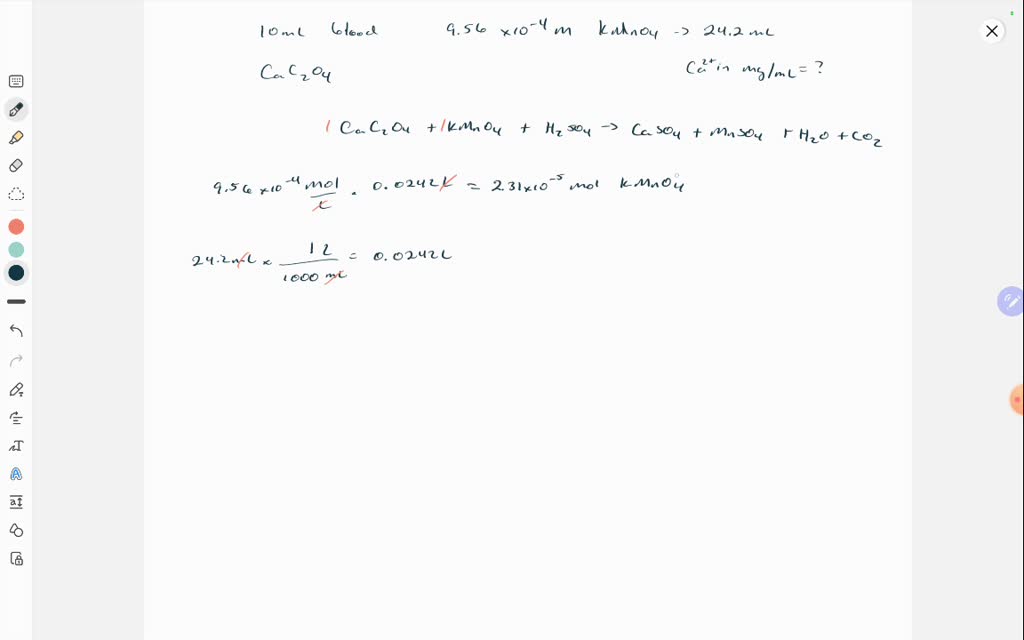 10mL blood 9.56 x10⁻⁴ M KMnO₄ -> 24.2 mL
CaC₂O₄ Ca²⁺ in mg/mL = ?
1 CaC₂O₄ + 1 KMnO₄ + H₂SO₄ -> CaSO₄ + MnSO₄ + H₂O + CO₂
9.56 x10⁻⁴ mol/L · 0.0242L = 2.31x10⁻⁵ mol KMnO₄
24.2mL x 1L/1000 mL = 0.0242L